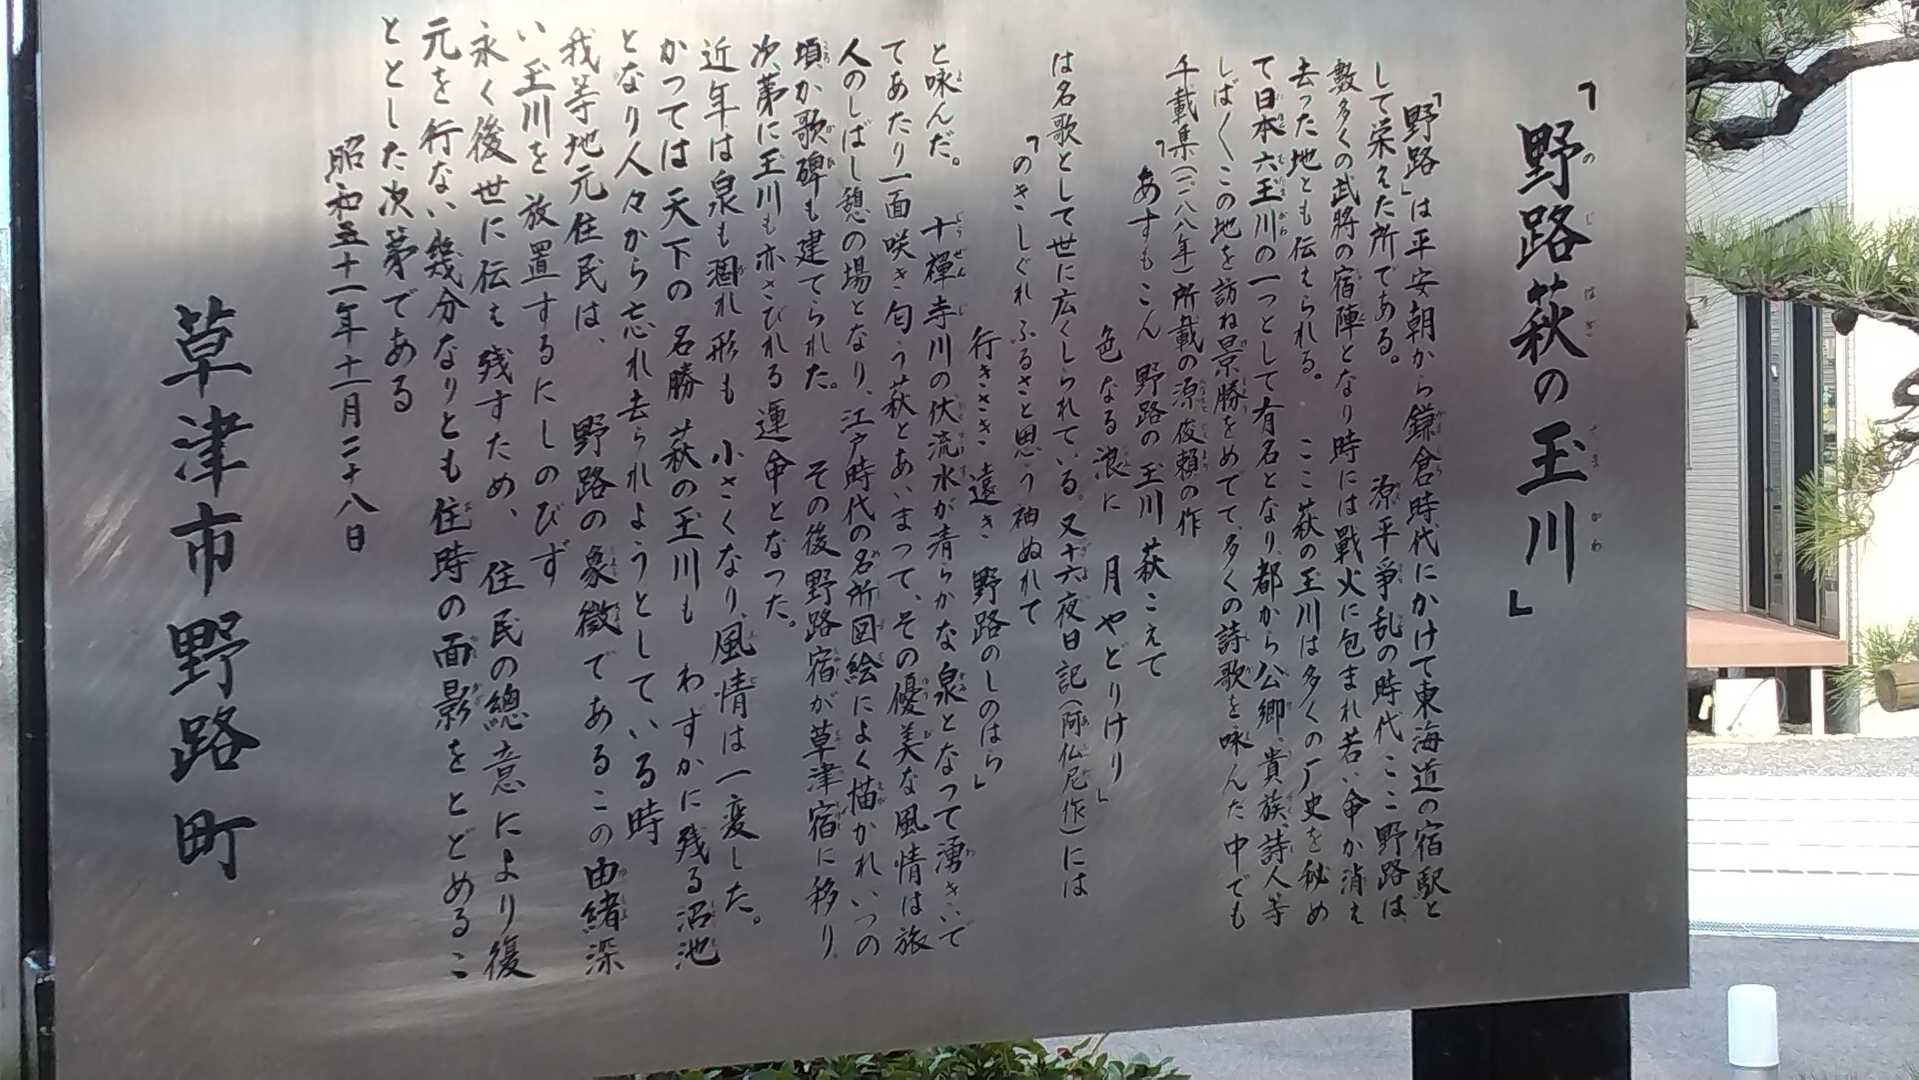 「野路萩の玉川」
「野路」は平安朝から鎌倉時代にかけて東海道の宿駅と
して栄えた所である。 源平争乱の時代ここ野路は、
数多くの武将の宿陣となり時には戦火に包まれ若い命か消え
去った地とも伝えられる。 ここ萩の玉川は多くの厂史を秘め
て日本六玉川の一つとして有名となり、都から公卿、貴族、詩人等
しばしばこの地を訪ね景勝をめでて、多くの詩歌を咏んだ中でも
千載集(一一八八年)所載の源俊頼の作
「あすもこん 野路の玉川 萩こえて
色なる浪に 月やどりけり」
は名歌として世に広くしられている。又十六夜日記(阿仏尼作)には
「のきしぐれ ふるさと思う 袖ぬれて
行きさき遠き 野路のしのはら」
と咏んだ。 十禅寺川の伏流水が清らかな泉となって湧きいで
てあたり一面咲き匂う萩とあいまって、その優美な風情は旅
人のしばし憩の場となり、江戸時代の名所図絵によく描かれ、いつの
頃か歌碑も建てられた。 その後野路宿が草津宿に移り、
次、第に玉川も亦さびれる運命となった。
近年は泉も涸れ形も 小さくなり、風情は一変した。
かつては天下の名勝 萩の玉川も わずかに残る沼池
となり人々から忘れ去られようとしている時
我等地元住民は、 野路の象徴であるこの由緒深
い玉川を 放置するにしのびず
永く後世に伝え残すため、 住民の總意により復
元を行ない幾分なりとも往時の面影をとどめるこ
ととした次第である
昭和五十一年十一月二十八日
草津市野路町